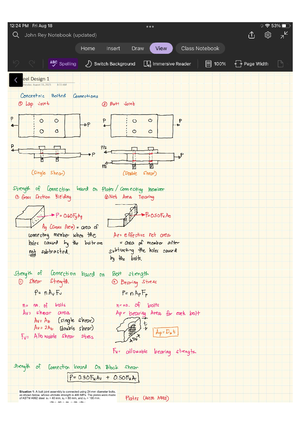 12:24 PM Fri Aug 18
53%
John Rey Notebook (updated)
Home Insert Draw View Class Notebook
Spelling Switch Background Immersive Reader 100% Page Width
Steel Design 1
Concentric Bolted Connections
① Lap Joint ② Butt Joint
P P P P
P P
P/2
P/2 P
(Single Shear) (Double Shear)
Strength of Connection based on Plate / Connecting Member
① Gross Section Yielding ② Net Area Tearing
P = 0.60FyAg P = 0.50FuAe
Ag (Gross Area) = area of
connecting member when the
holes caused by the bolt are
not subtracted.
Ae = effective net area
= area of member after
subtracting the holes caused
by the bolt.
Strength of Connection based on Bolt Strength
① Shear Strength ② Bearing Stress
P = n Av Fv P = n Ap Fp
n = no. of bolts
Av = shear area
Av = Ab (single shear)
Av = 2Ab (double shear)
Fv = Allowable shear stress
n = no. of bolts
Ap = bearing area for each bolt
Fp = allowable bearing strength
Strength of Connection based on Block Shear
P = 0.30FuAv + 0.50FuAt
Plates (A36 A992)